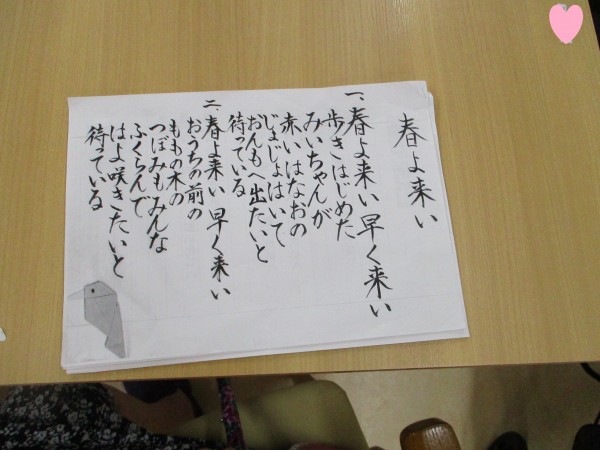 春よ来い
一、春よ来い 早く来い
歩きはじめた
みいちゃんが
赤いはなおの
じょじょはいて
おんもへ出たいと
待っている
二、春よ来い 早く来い
おうちの前の
ももの木の
つぼみもみんな
ふくらんで
はよ咲きたいと
待っている